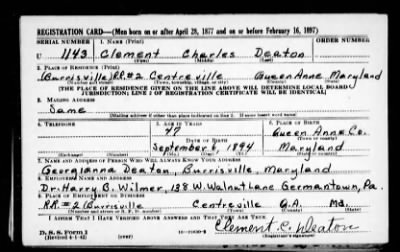 REGISTRATION CARD—(Men born on or after April 28, 1877 and on or before February 16, 1897)
SERIAL NUMBER 1. NAME (Print) ORDER NUMBER
U 1143 Clement Charles Deaton
(First) (Middle) (Last)
2. PLACE OF RESIDENCE (Print)
Burrisville RR.#2 Centreville Queen Anne Maryland
(Number and street) (Town, township, village, or city) (County) (State)
[THE PLACE OF RESIDENCE GIVEN ON THE LINE ABOVE WILL DETERMINE LOCAL BOARD
JURISDICTION; LINE 2 OF REGISTRATION CERTIFICATE WILL BE IDENTICAL]
3. MAILING ADDRESS
Same
[Mailing address if other than place indicated on line 2. If same insert word same]
4. TELEPHONE 5. AGE IN YEARS 6. PLACE OF BIRTH
47 Queen Anne Co.
DATE OF BIRTH (Town or county)
September 6, 1894 Maryland
(Exchange) (Number) (Mo.) (Day) (Yr.) (State or country)
7. NAME AND ADDRESS OF PERSON WHO WILL ALWAYS KNOW YOUR ADDRESS
Georgianna Deaton, Burrisville, Maryland
8. EMPLOYER'S NAME AND ADDRESS
Dr. Harry B. Wilmer, 138 W. Walnut Lane Germantown, Pa.
9. PLACE OF EMPLOYMENT OR BUSINESS
RR.#2 Burrisville Centreville Q.A. Md.
(Number and street or R. F. D. number) (Town) (County) (State)
I AFFIRM THAT I HAVE VERIFIED ABOVE ANSWERS AND THAT THEY ARE TRUE.
D. S. S. Form 1
(Revised 4-1-42) (over) Clement C. Deaton
(Registrant's signature)